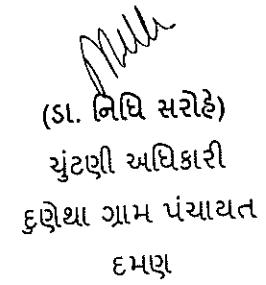 (ડા. નિધિ સરોહે)
ચુંટણી અધિકારી
દુણેથા ગ્રામ પંચાયત
દમણ